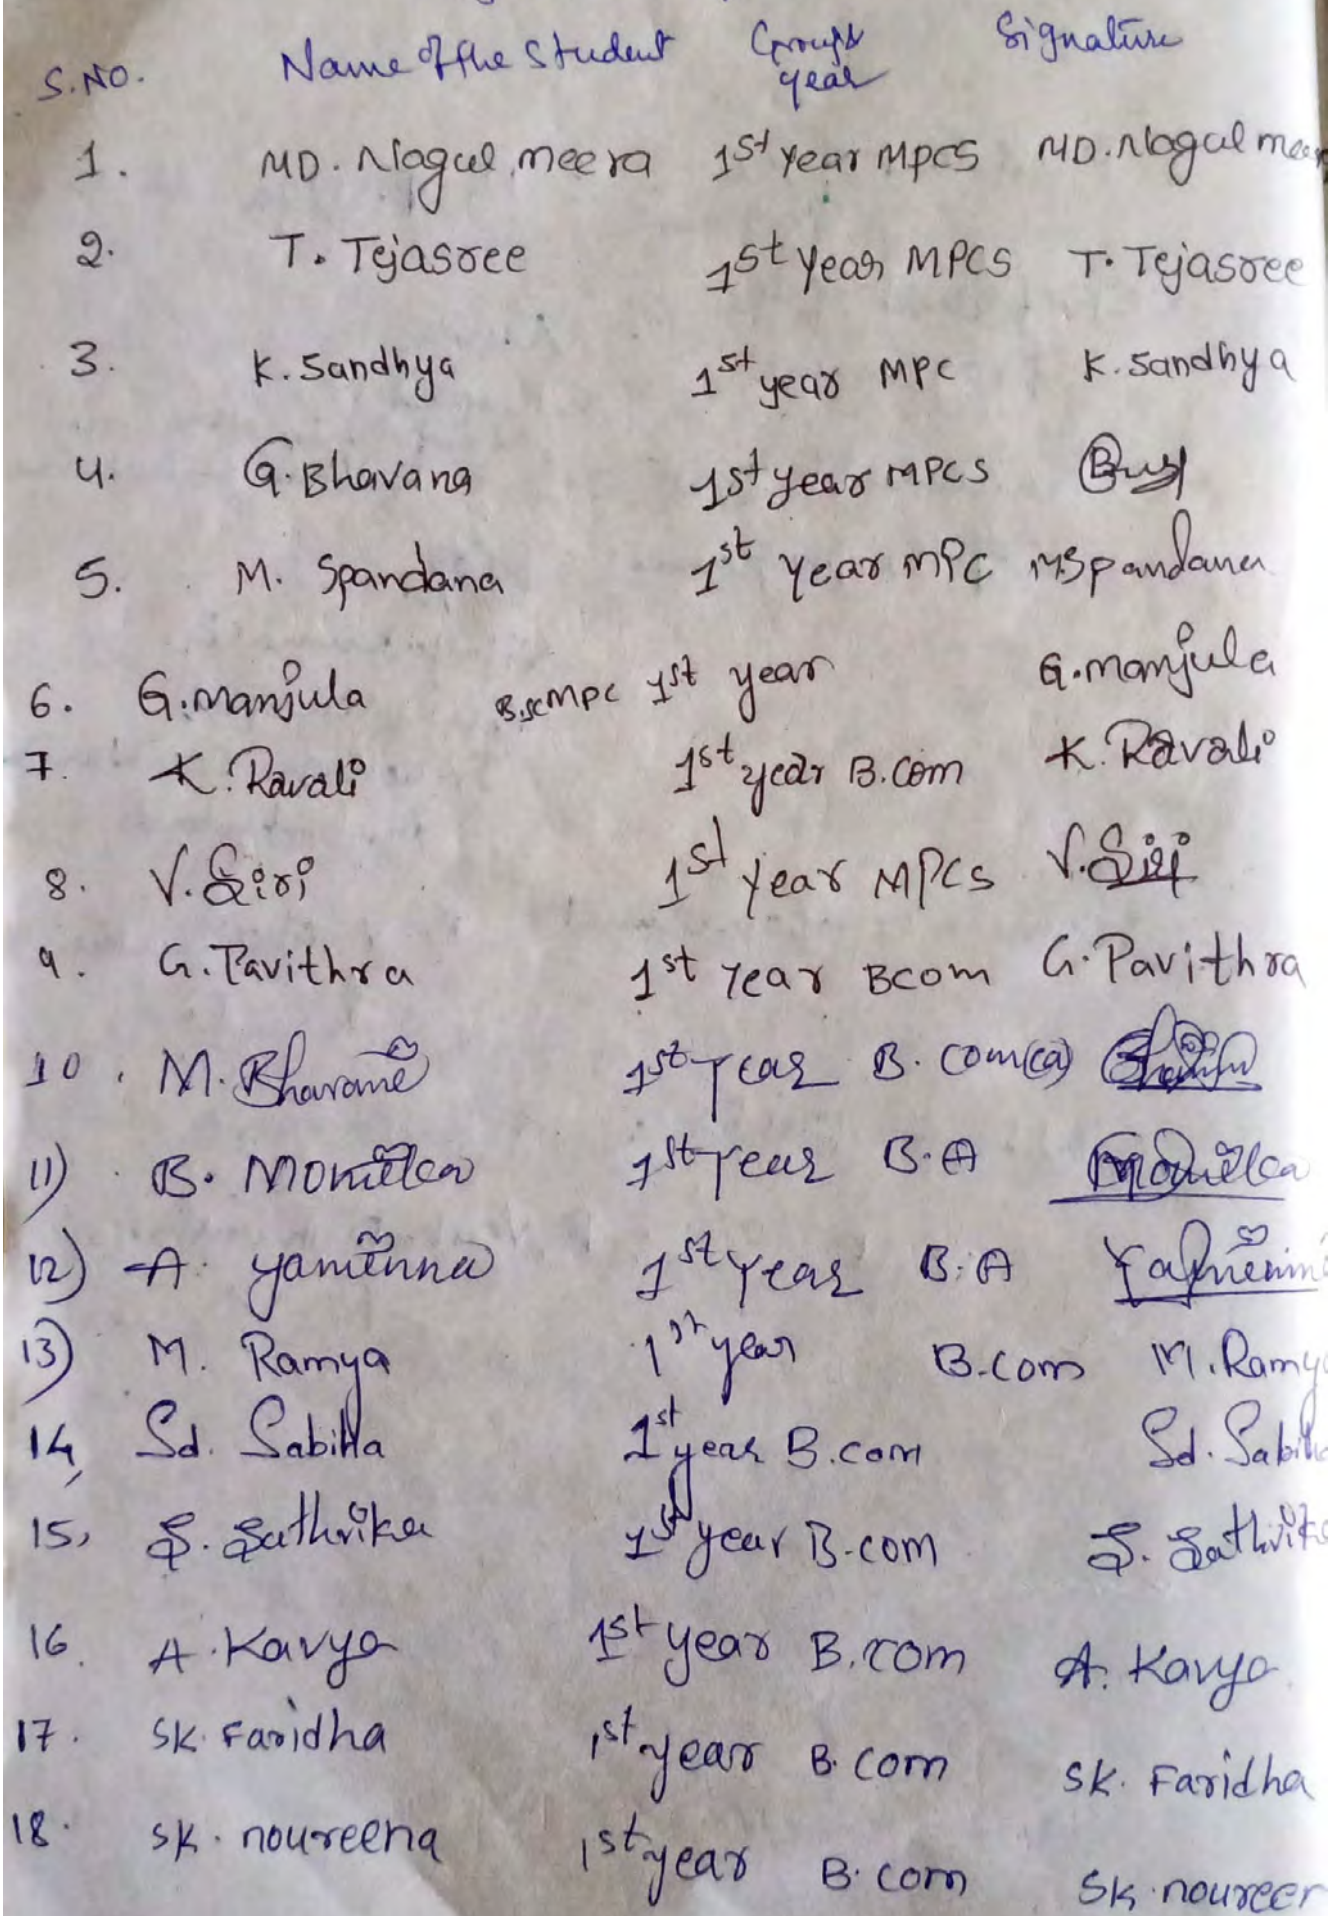 S.NO. Name of the Student Group & Signature
year
1. MD. Nagul meera 1st year MPCS MD. Nagul meer
2. T. Tejasree 1st year MPCS T. Tejasree
3. K. Sandhya 1st year MPC K. Sandhya
4. G. Bhavana 1st year MPCS
5. M. Spandana 1st year MPC M.Spandana
6. G. manjula B.sc MPC 1st year G. manjula
7. K. Ravali 1st year B.com K. Ravali
8. V. Siri 1st year MPCS V. Siri
9. G. Pavithra 1st year Bcom G. Pavithra
10. M. Bhavani 1st year B. com(ca)
11) B. Monika 1st year B.A Monika
12) A. yaminna 1st year B.A
13) M. Ramya 1st year B.com M. Ramya
14, Sd. Sabiha 1st year B.com Sd. Sabiha
15, S. Sathvika 1st year B.com S. Sathvika
16. A. Kavya 1st year B.com A. Kavya
17. SK. Faridha 1st year B. com SK. Faridha
18. SK. noureena 1st year B. com SK. noureen